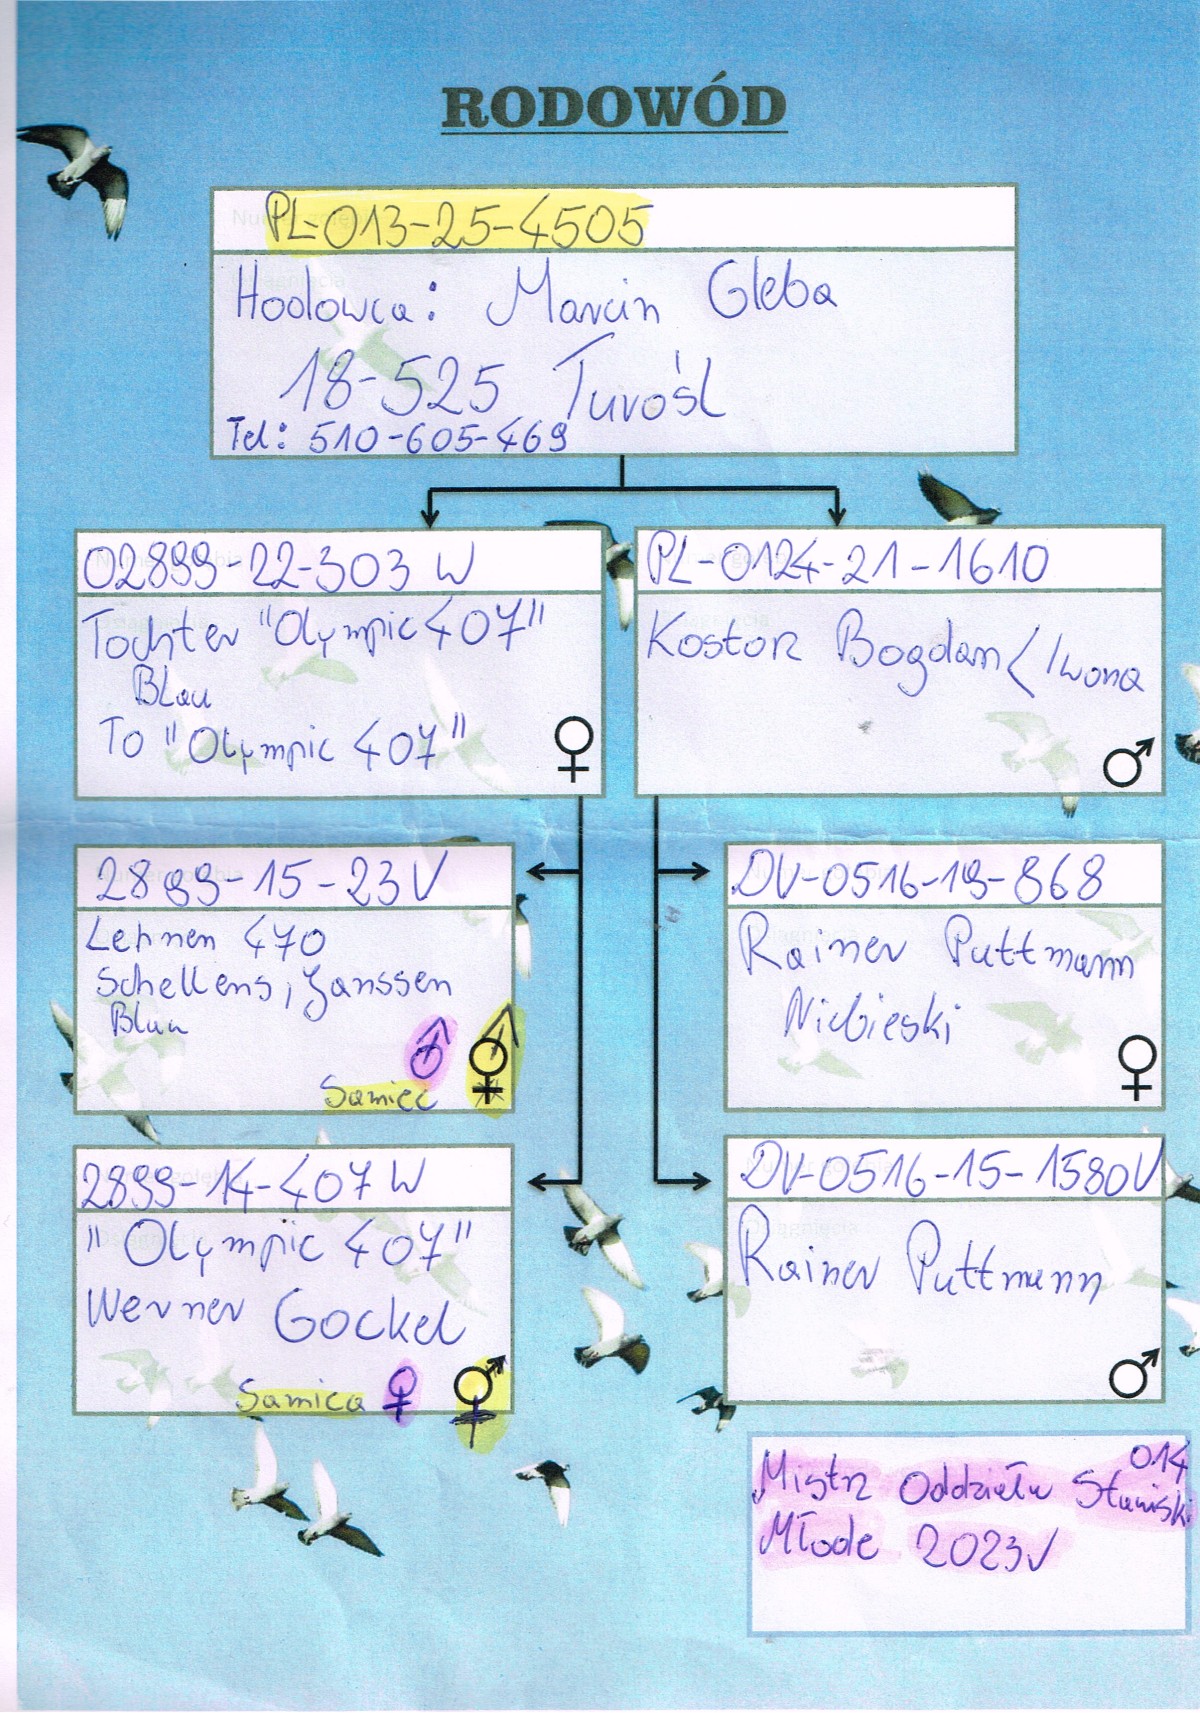 RODOWÓD
PL-013-25-4505
Hodowca: Marcin Gleba
18-525 Turośl
Tel: 510-605-469
02899-22-303 W
Tochter "Olympic 407"
Blau
To "Olympic 407"
♀
PL-0124-21-1610
Kostorz Bogdan / Iwona
♂
2899-15-23V
Lehnen 470
Schellens, Janssen
Blau
Samiec ♂
2899-14-407 W
"Olympic 407"
Werner Gockel
Samica ♀
DV-0516-19-868
Rainer Puttmann
Niebieski
♀
DV-0516-15-1580V
Rainer Puttmann
♂
014
Mistrz Oddziału Stawisk
Młode 2023